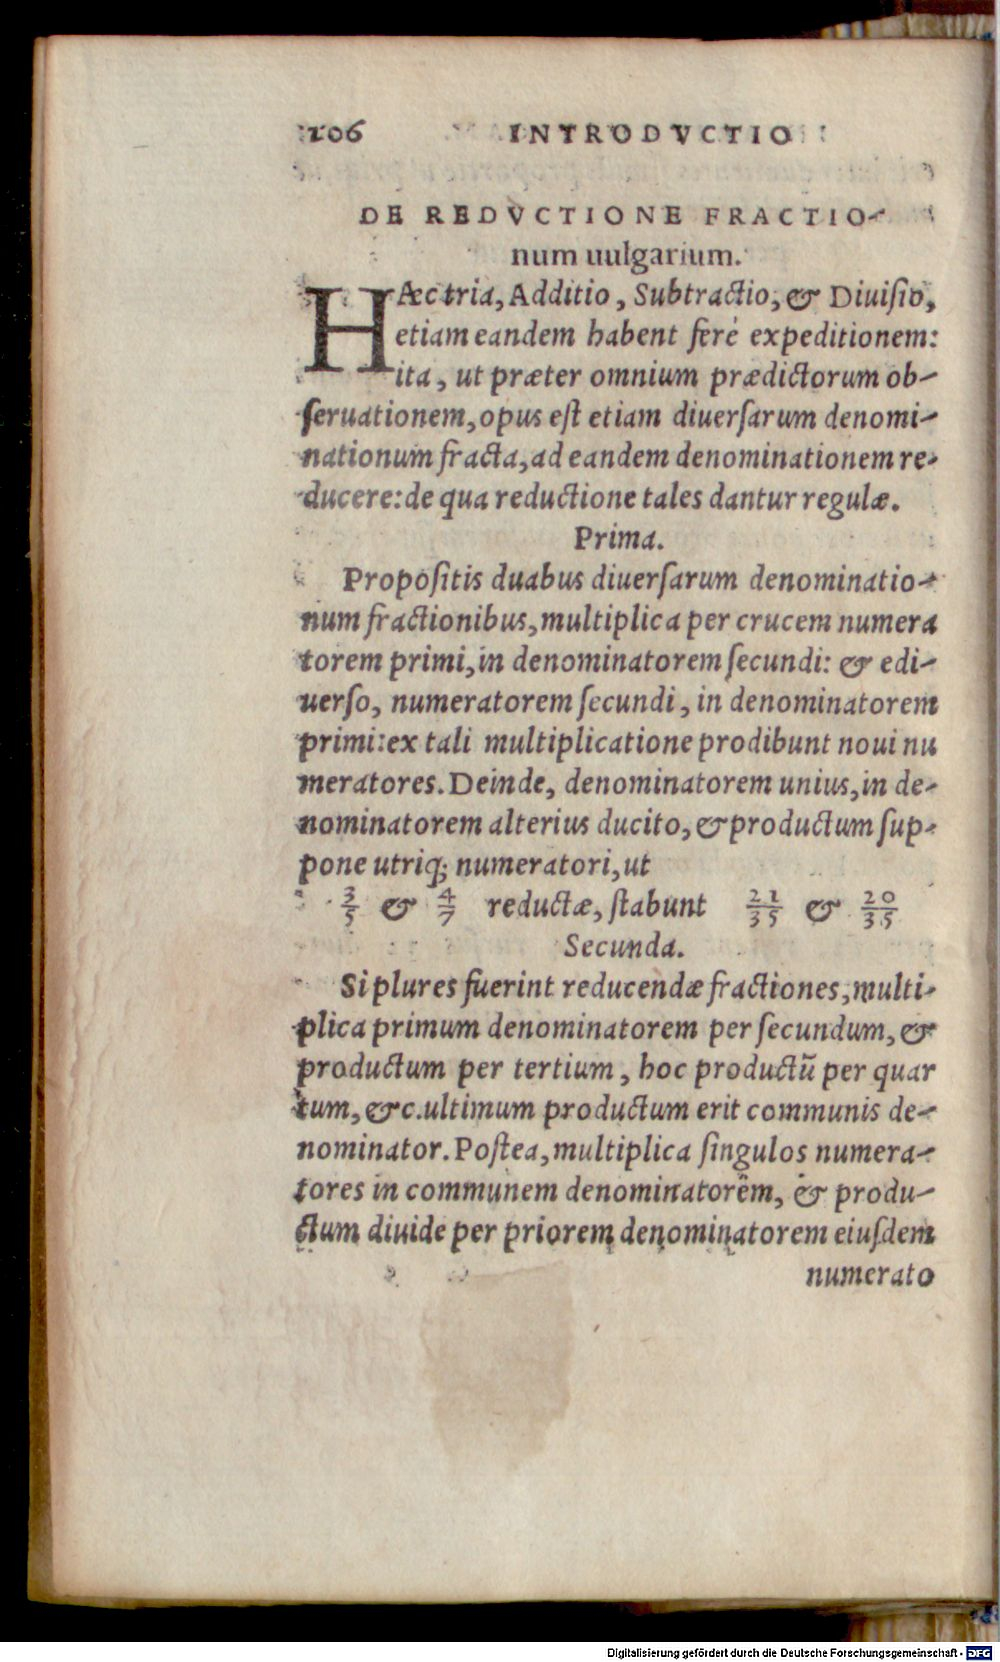 106 INTRODVCTIO
DE REDVCTIONE FRACTIO-
num uulgarium.
HAEc tria, Additio, Subtractio, & Diuiſio,
etiam eandem habent ferè expeditionem:
ita, ut præter omnium prædictorum ob-
ſeruationem, opus eſt etiam diuerſarum denomi-
nationum fracta, ad eandem denominationem re-
ducere: de qua reductione tales dantur regulæ.
Prima.
Propoſitis duabus diuerſarum denominatio-
num fractionibus, multiplica per crucem numera
torem primi, in denominatorem ſecundi: & edi-
uerſo, numeratorem ſecundi, in denominatorem
primi: ex tali multiplicatione prodibunt noui nu
meratores. Deinde, denominatorem unius, in de-
nominatorem alterius ducito, & productum ſup-
pone utriq; numeratori, ut
3/5 & 4/7 reductæ, ſtabunt 21/35 & 20/35
Secunda.
Si plures fuerint reducendæ fractiones, multi-
plica primum denominatorem per ſecundum, &
productum per tertium, hoc productū per quar
tum, &c. ultimum productum erit communis de-
nominator. Poſtea, multiplica ſingulos numera-
tores in communem denominatorem, & produ-
ctum diuide per priorem denominatorem eiuſdem
numerato
Digitalisierung gefördert durch die Deutsche Forschungsgemeinschaft - DFG